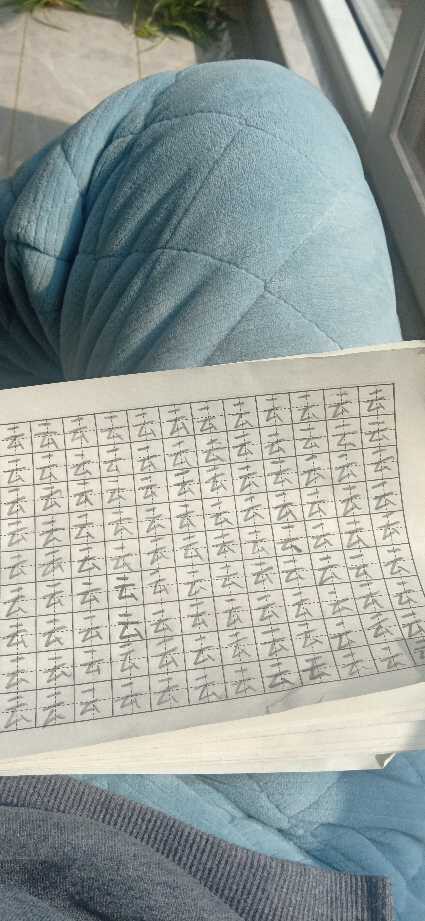 去去去去去去去去去去去去
去去去去去去去去去去去去
去去去去去去去去去去去去
去去去去去去去去去去去去
去去去去去去去去去去去去
去去去去去去去去去去去去
去去去去去去去去去去去去
去去去去去去去去去去去去
去去去去去去去去去去去去